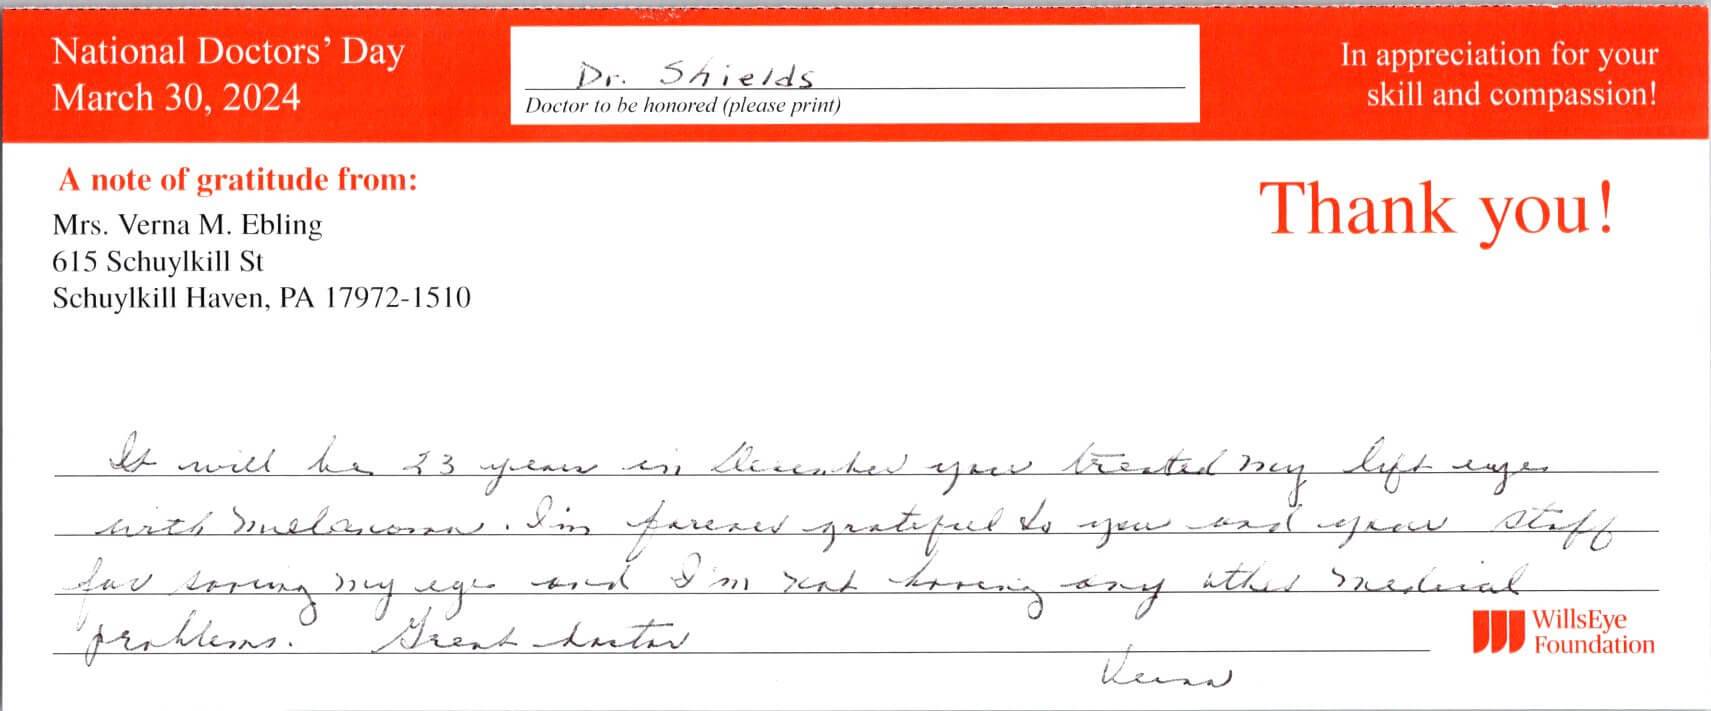 National Doctors' Day
March 30, 2024
Dr. Shields
Doctor to be honored (please print)
In appreciation for your
skill and compassion!
A note of gratitude from:
Mrs. Verna M. Ebling
615 Schuylkill St
Schuylkill Haven, PA 17972-1510
Thank you!
It will be 23 years in December you treated my left eye
with melanoma. I'm forever grateful to you and your staff
for saving my eye and I'm not having any other medical
problems. Great doctor
Verna
WillsEye
Foundation